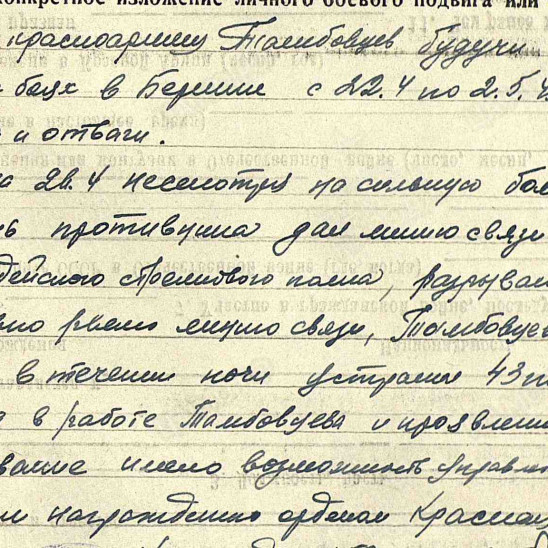 конкретное изложение личного боевого подвига или
красноармеец Тамбовцев будучи
боях в Берлине с 22.4 по 2.5.4
и отваги.
28.4 несмотря на сильную бом
противника дал линию связи
дейского стрелкового полка, разрывам
рвало линию связи, Тамбовцев
в течении ночи устранил 43 п
в работе Тамбовцева и проявлени
вание имело возможность управл
награждению орденом Красная